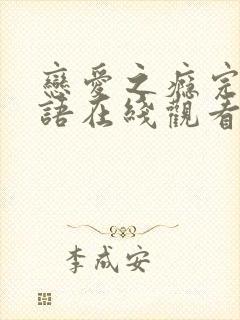 戀愛之癮完
語在綫觀看
李成安